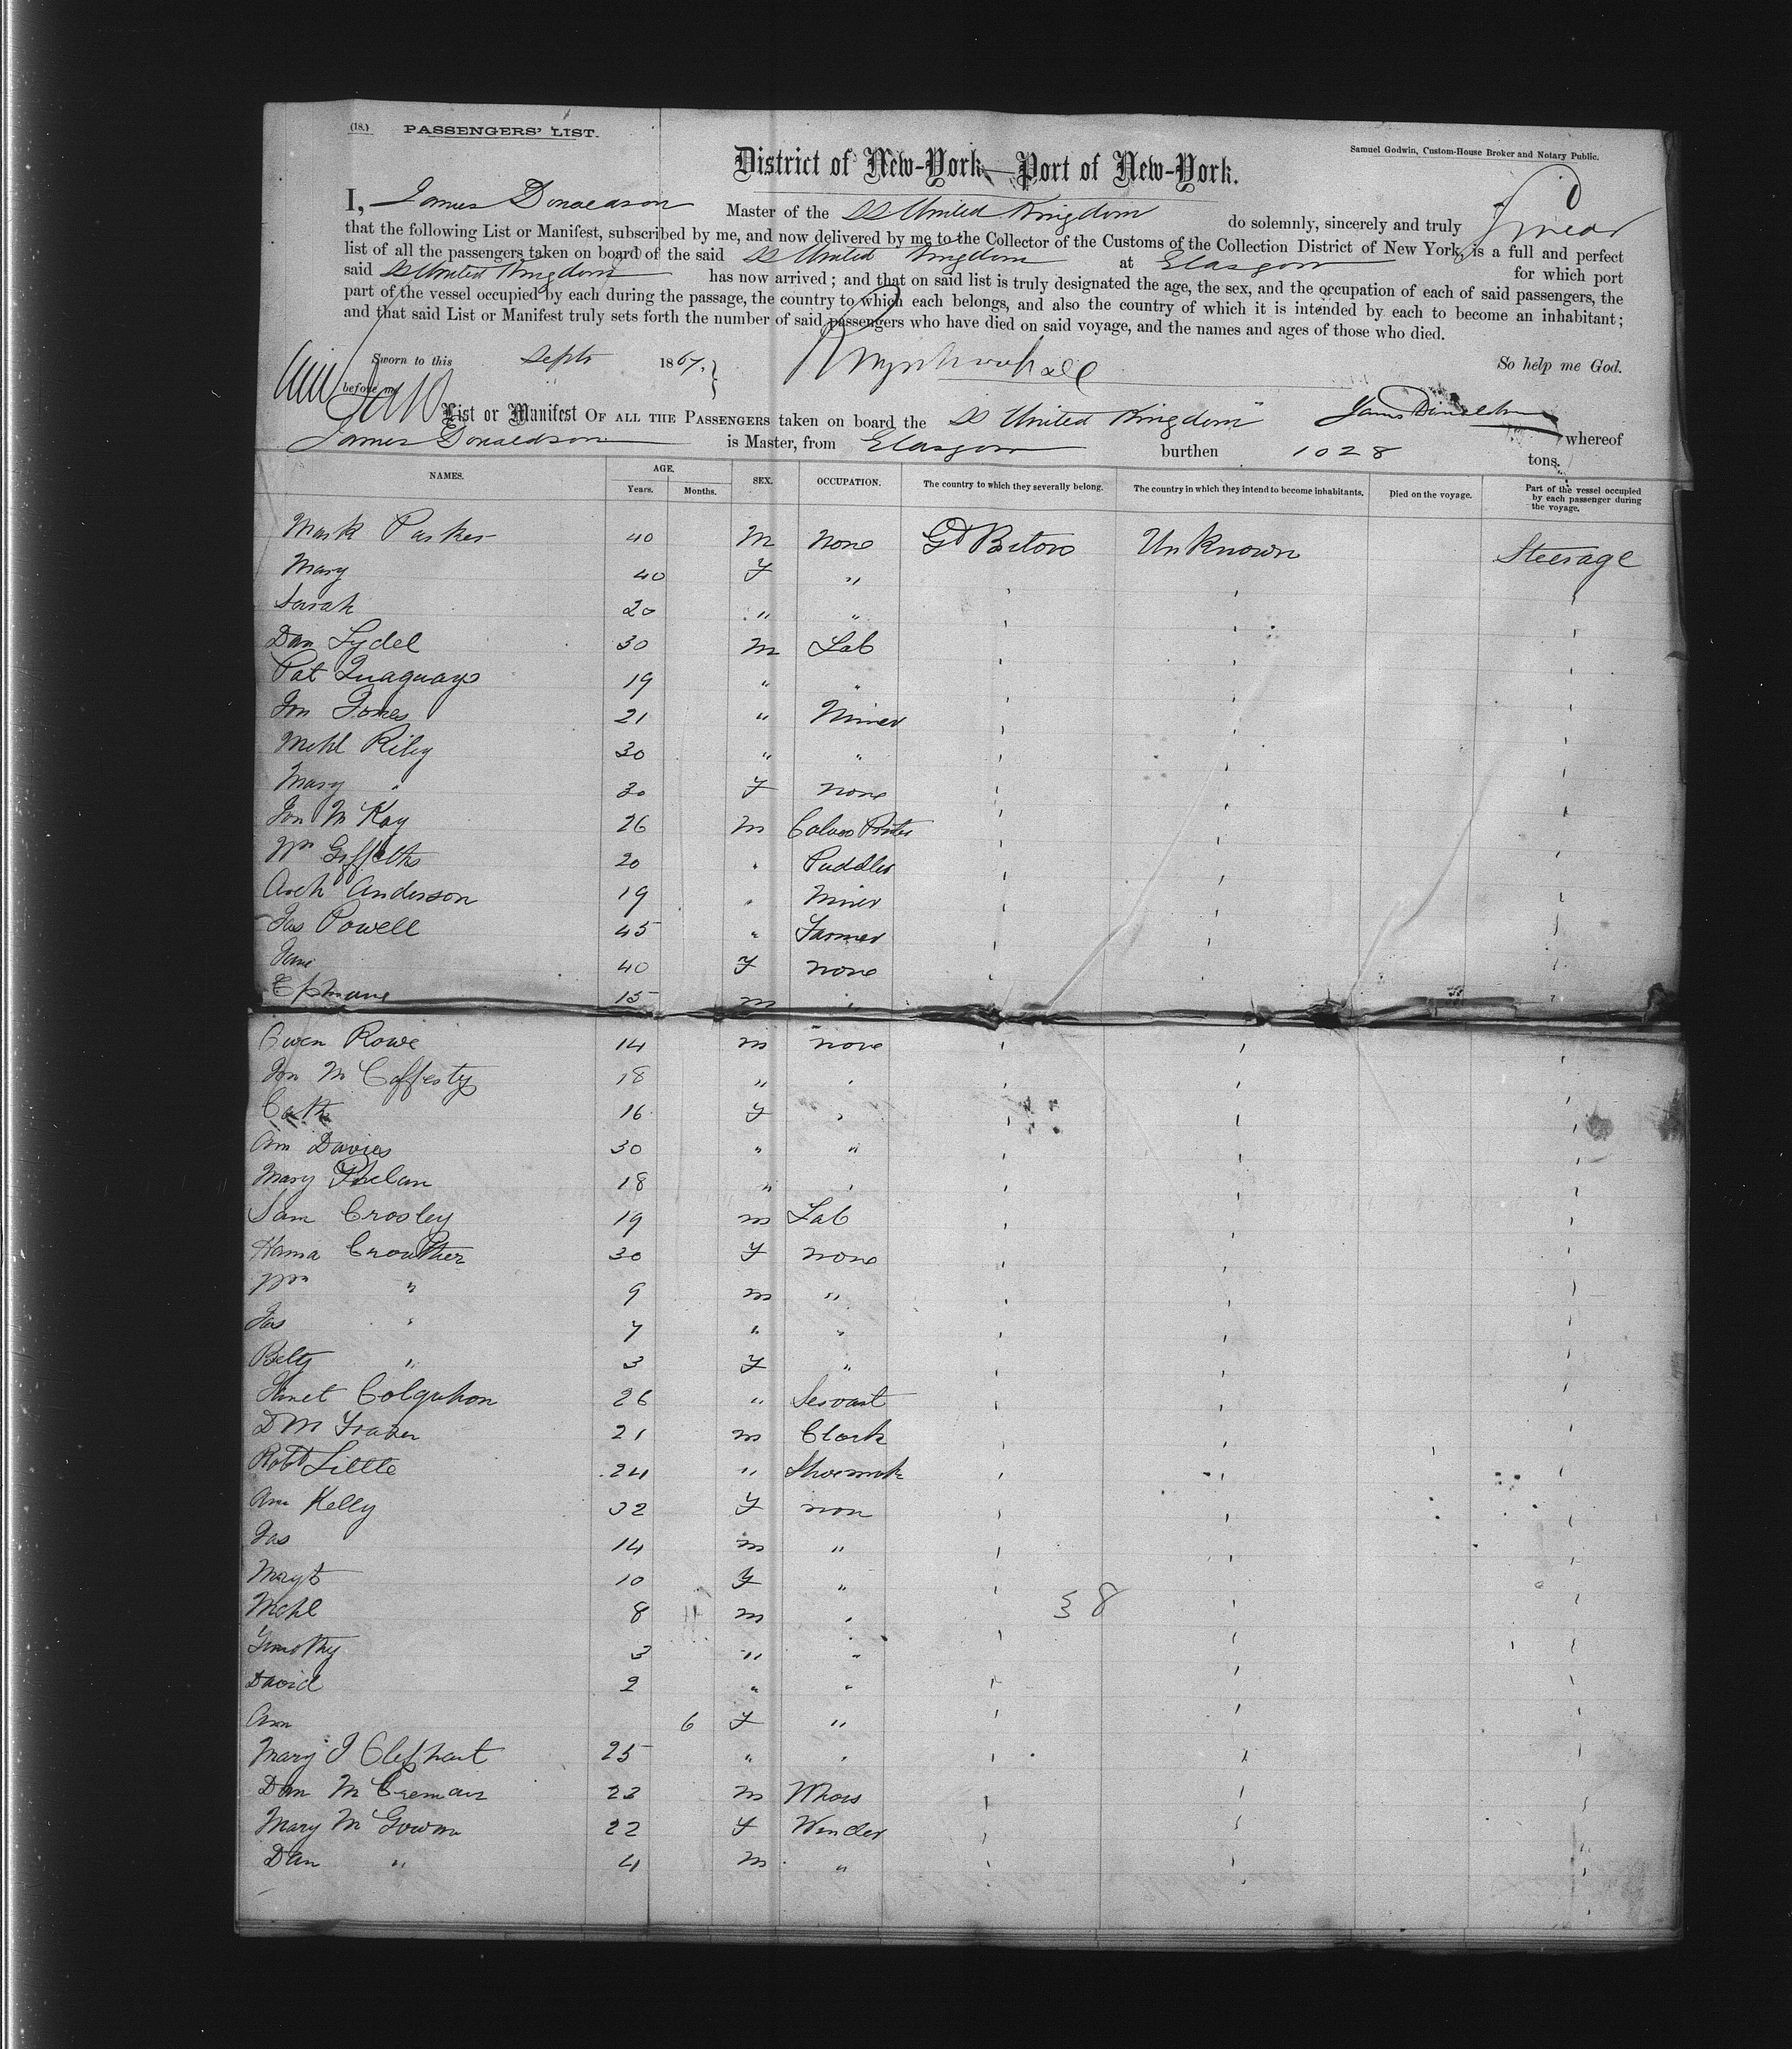 (18.) PASSENGERS' LIST.
Samuel Godwin, Custom-House Broker and Notary Public.
District of New-York—Port of New-York.
I, James Donaldson Master of the SS United Kingdom do solemnly, sincerely and truly swear
that the following List or Manifest, subscribed by me, and now delivered by me to the Collector of the Customs of the Collection District of New York, is a full and perfect
list of all the passengers taken on board of the said SS United Kingdom at Glasgow for which port
said SS United Kingdom has now arrived; and that on said list is truly designated the age, the sex, and the occupation of each of said passengers, the
part of the vessel occupied by each during the passage, the country to which each belongs, and also the country of which it is intended by each to become an inhabitant;
and that said List or Manifest truly sets forth the number of said passengers who have died on said voyage, and the names and ages of those who died.
Sworn to this Septr 1867. So help me God.
before me
List or Manifest OF ALL THE PASSENGERS taken on board the SS United Kingdom James Donaldson whereof
James Donaldson is Master, from Glasgow burthen 1028 tons.
NAMES. AGE. SEX. OCCUPATION. The country to which they severally belong. The country in which they intend to become inhabitants. Died on the voyage. Part of the vessel occupied by each passenger during the voyage.
Years. Months.
Mark Parker 40 M None Gt Britain Unknown Steerage
Mary 40 F "
Sarah 20 " "
Dan Lydel 30 m Lab
Pat 19 " "
Jon Jones 21 " Miner
Mchl Riley 30 " "
Mary " 30 F none
Jon McKay 26 m
Wm Griffiths 20 " Puddler
Arch Anderson 19 " Miner
Jas Powell 45 " Farmer
Jane 40 F none
15 m "
Owen Rowe 14 m none
Jon McCafferty 18 " "
Cath 16 F "
Ann Davies 30 " "
Mary Phelan 18 " "
Sam Crosley 19 m Lab
Hanna Crowther 30 F none
Wm " 9 m "
Jas " 7 " "
Betty " 3 F "
Janet Colquhon 26 " Servant
D M Frazer 21 m Clerk
Robt Little 24 " Shoemak
Ann Kelly 32 F non
Jas 14 m "
Magt 10 F "
Mchl 8 m " 38
Timothy 3 " "
David 2 " "
Ann 6 F "
Mary J Olephant 25 " "
Dan 23 m
Mary McGowan 22 F Winder
Dan " 4 m "